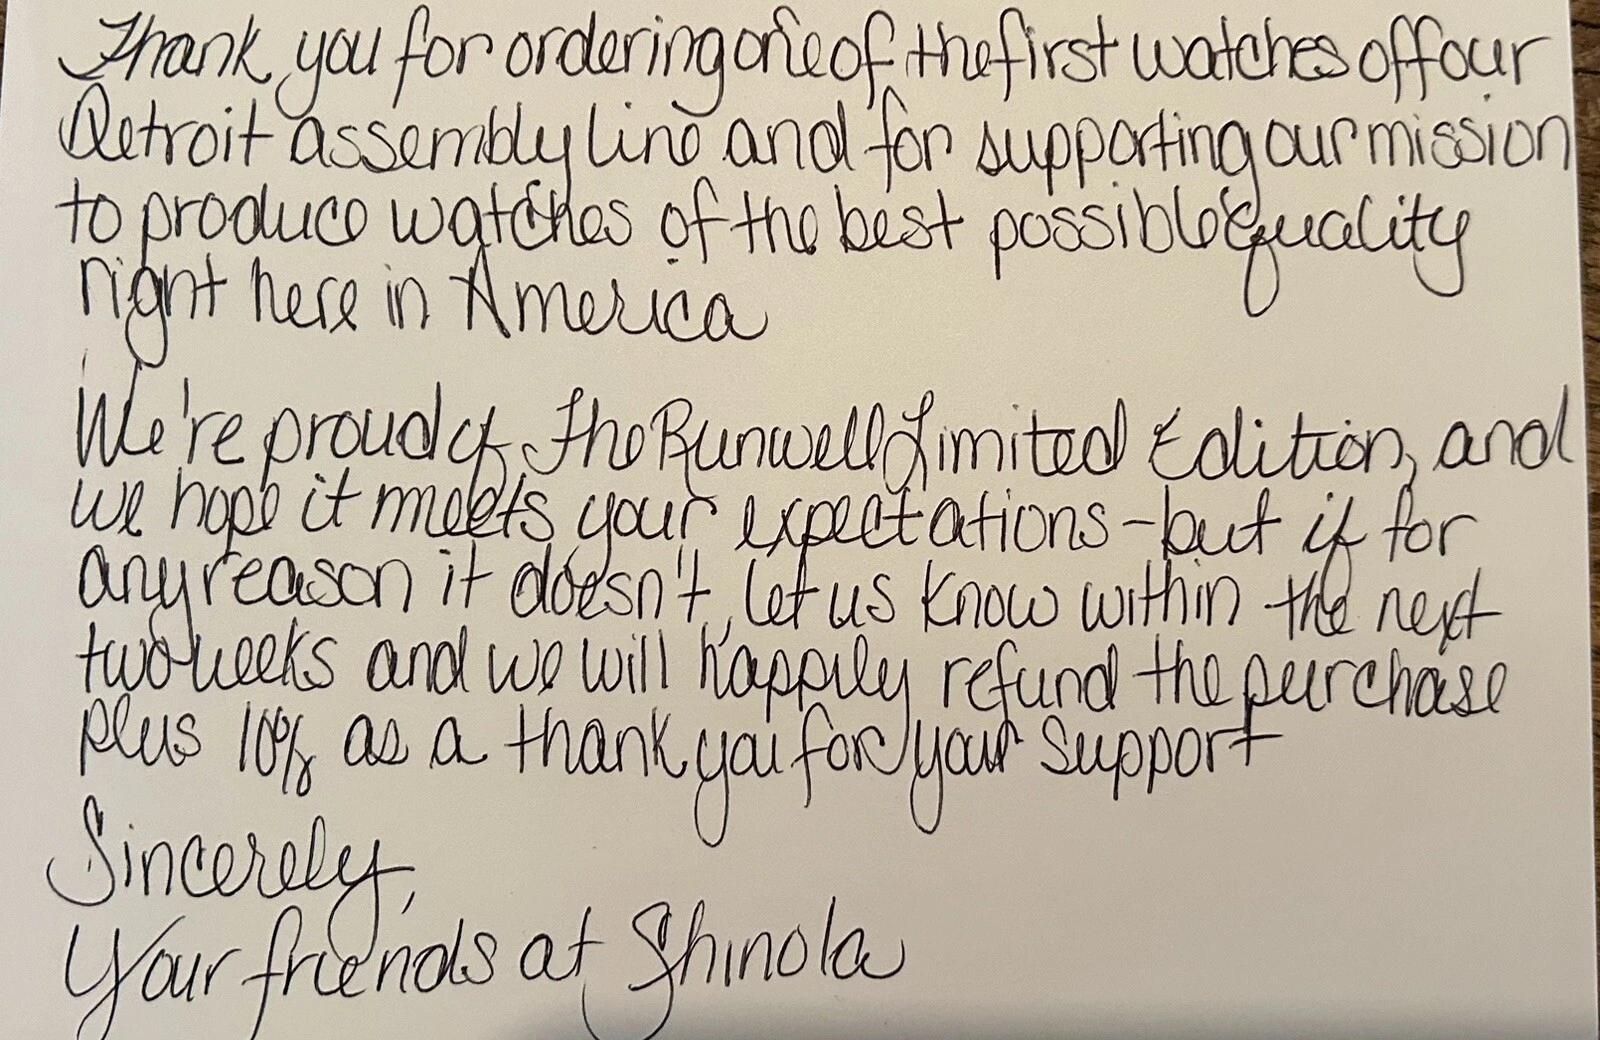 Thank you for ordering one of the first watches off our
Detroit assembly line and for supporting our mission
to produce watches of the best possible quality
right here in America
We're proud of The Runwell Limited Edition, and
we hope it meets your expectations - but if for
any reason it doesn't, let us know within the next
two weeks and we will happily refund the purchase
plus 10% as a thank you for your support
Sincerely,
Your friends at Shinola